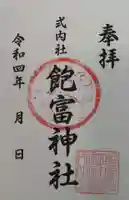 奉拝
式内社
飽富神社
令和四年 月 日